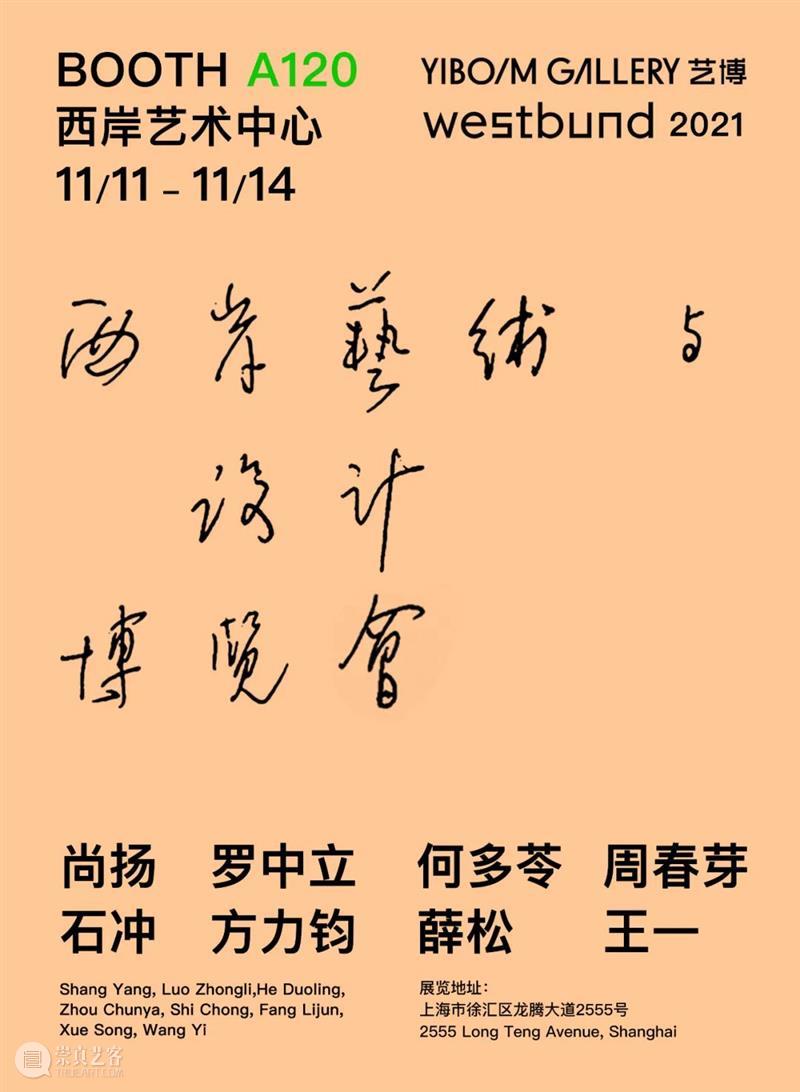 BOOTH A120
西岸艺术中心
11/11 – 11/14
YIBO/M GALLERY 艺博
westbund 2021
西岸藝術与
设计
博覽會
尚扬 罗中立 何多苓 周春芽
石冲 方力钧 薛松 王一
Shang Yang, Luo Zhongli,He Duoling,
Zhou Chunya, Shi Chong, Fang Lijun,
Xue Song, Wang Yi
展览地址：
上海市徐汇区龙腾大道2555号
2555 Long Teng Avenue, Shanghai
崇真艺客